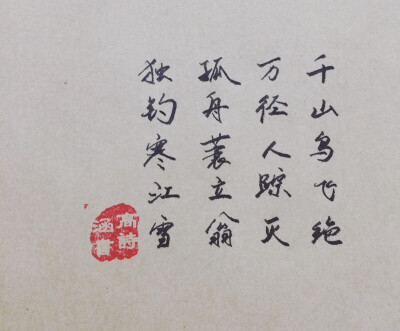 千山鸟飞绝
万径人踪灭
孤舟蓑立翁
独钓寒江雪